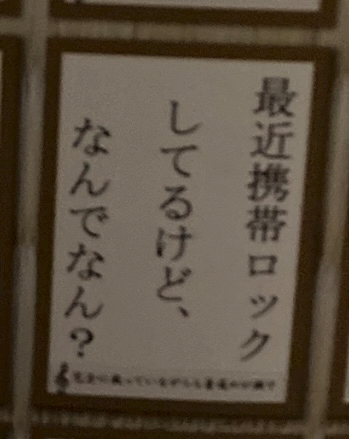 最近携帯ロック
してるけど、
なんでなん？